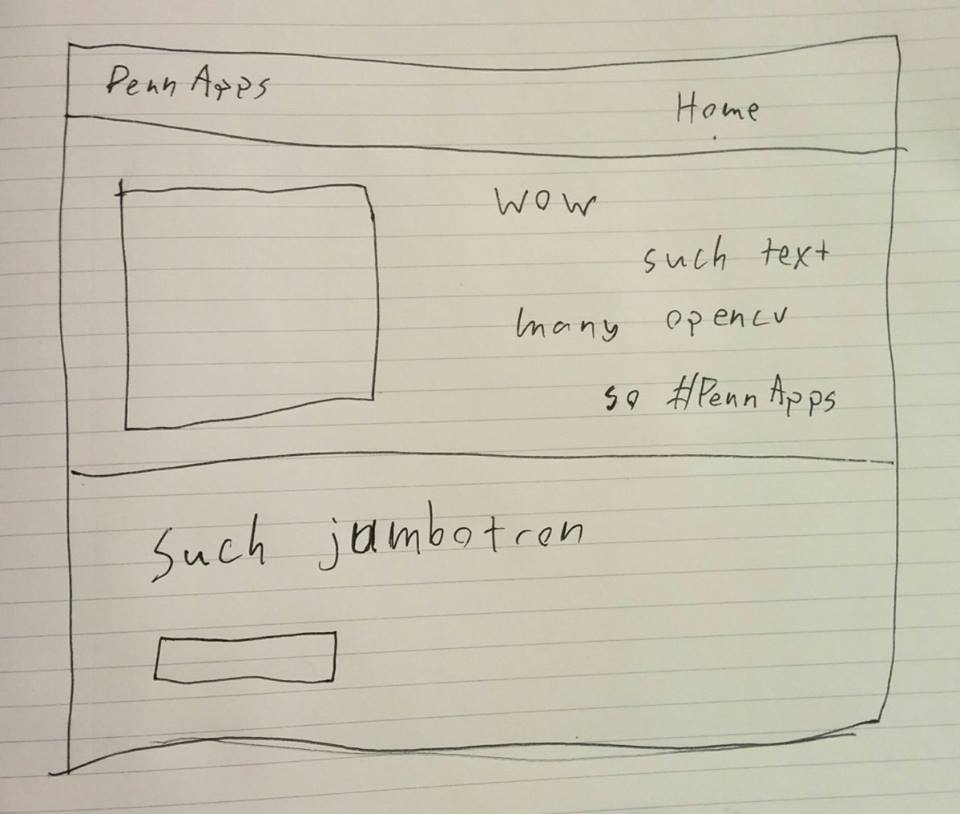 PennApps
Home
wow
such text
many opencv
so #PennApps
such jambotron